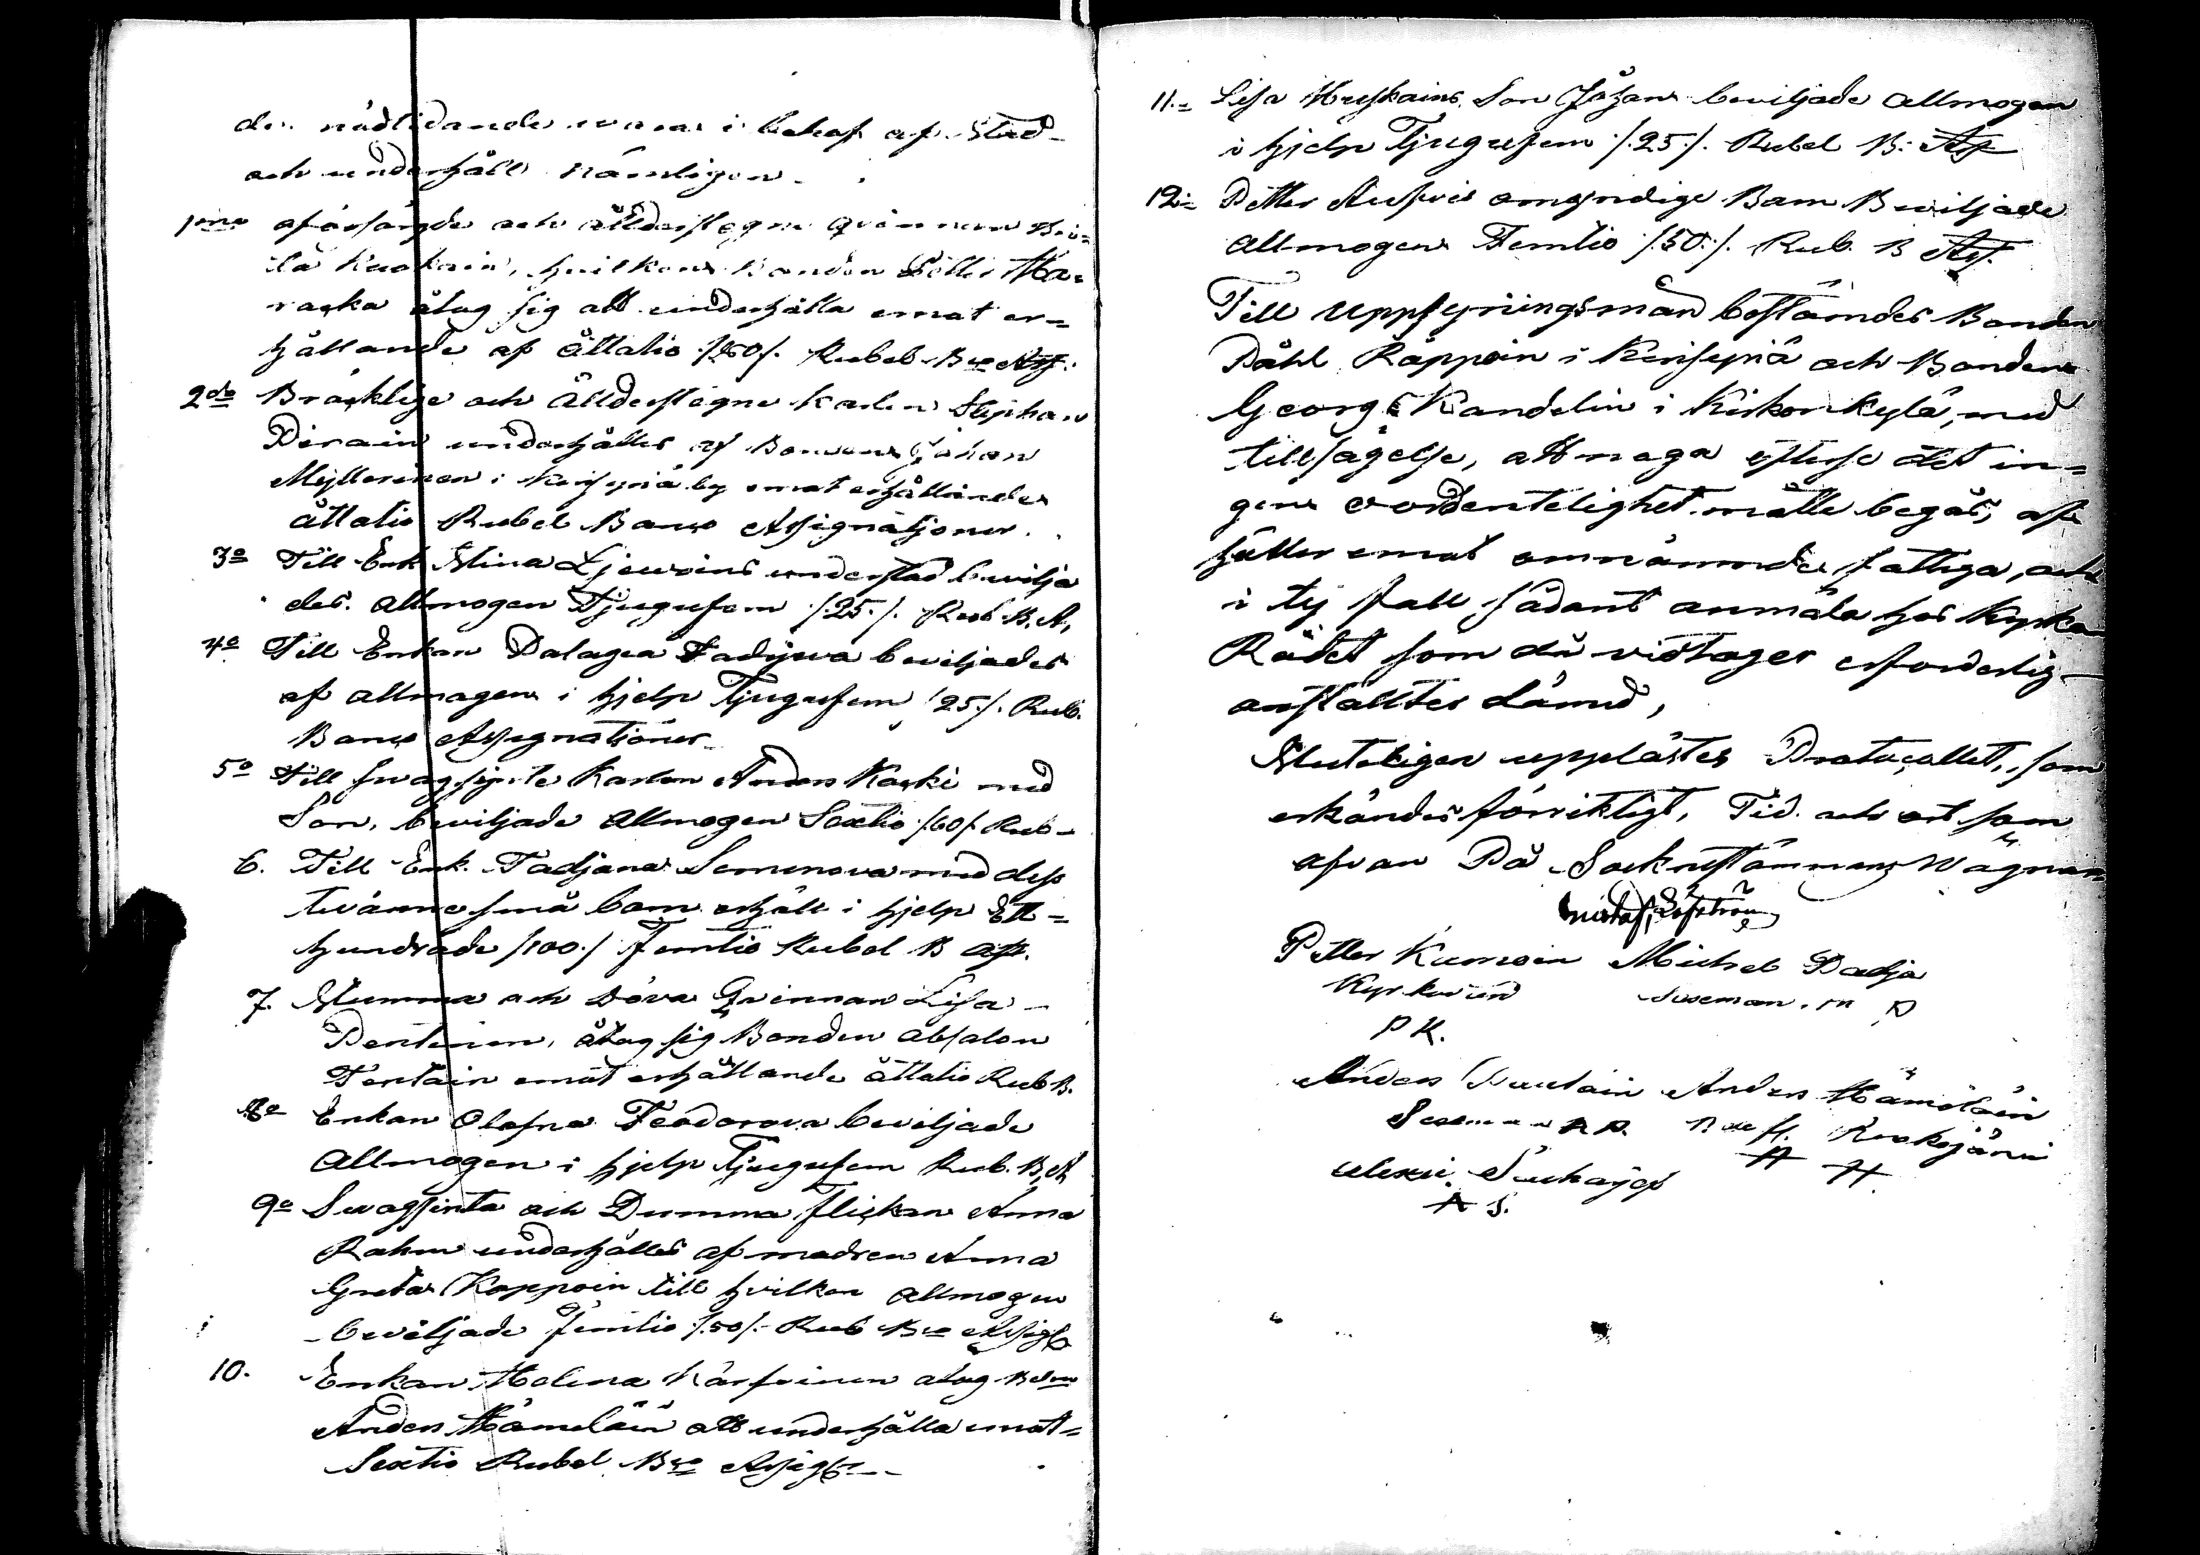 de nödlidande warar i behof af stöd
och underhåll nämligen
1mo åtog sig att underhålla emot er=
hållande af Åttatio /:80:/ Rubel Bco Assg:
2do Bräcklige och Ållderstegne karlen Stephan
Pirain underhålles af Bonden Johan
Myllerinen i Kirisyriä by emot erhållande
åttatio Rubel Banco Assignationer.
3o Till Enk Stina Ljewoins understöd bevilja
des allmogen Tjugufem /:25:/ Rub. B. A,
4o Till Enkan Palagea Fadijewa beviljades
af allmogen i hjelp Tjugufem /25:/. Rub.
Banco Assignationer
5o Till swagsinte Karlen Anders Kaski med
Son, beviljade Allmogen Sextio /60/ Rub-
6. Till Enk. Tadjana Semenova med dess
tvänne små barn erhåll i hjelp Ett=
hundrade /100:/ femtio Rubel B Ass.
7. Stumma och Döva Qvinnan Lisa
Pentinen, åtog sig Bonden Absalon
Tentain emot erhållande åttatio Rub B.
8o Enkan Olofna Feodorova beviljade
Allmogen i hjelp Tjugufem Rub. B. A
9o Swagsinta och Dumma flickan Anna
Rahm underhålles af modren Anna
Greta Koppoin till hvilken allmogen
beviljade femtio /:50/:- Rub Bco Assigt
10. Enkan Helena Kärfvinen åtog Bdn
Anders Hämeläin att underhålla emot=
Sextio Rubel Bco Assigt
11.= Lisa Huskains Son Johan beviljade allmogen
i hjelp Tjugufem /:25:/. Rubel B: As
12= Petter omyndige Barn Beviljade
Allmogen Femtio /:50:/. Rub. B As.
Till Uppsyningsmän bestämdes Bonden
Påhl Räppoin i Kirisyriä och Bonden
Georg Kandelin i Kirkonkylä, med
tillsägelse, att noga efterse det in=
gen vordentelighet måtte begås, af
håller emot omnämnde fattiga, och
i ty fall sådant anmäla hos Kyrko
Rådet som då vidtager erforderlig
anstallter dämed,
Sluteligen upplästes Protocollet, som
erkändes för riktigt, Tid och ort som
ofvan På Socknestämmans Wägnar
Gustaf Löfström
Petter Kumoin Michel Padja
Kyrkovärd Sexeman. M P
P K.
Anders Anders Hämeläin
Sexeman Ruokojärvi
A H
Alexei
A S.